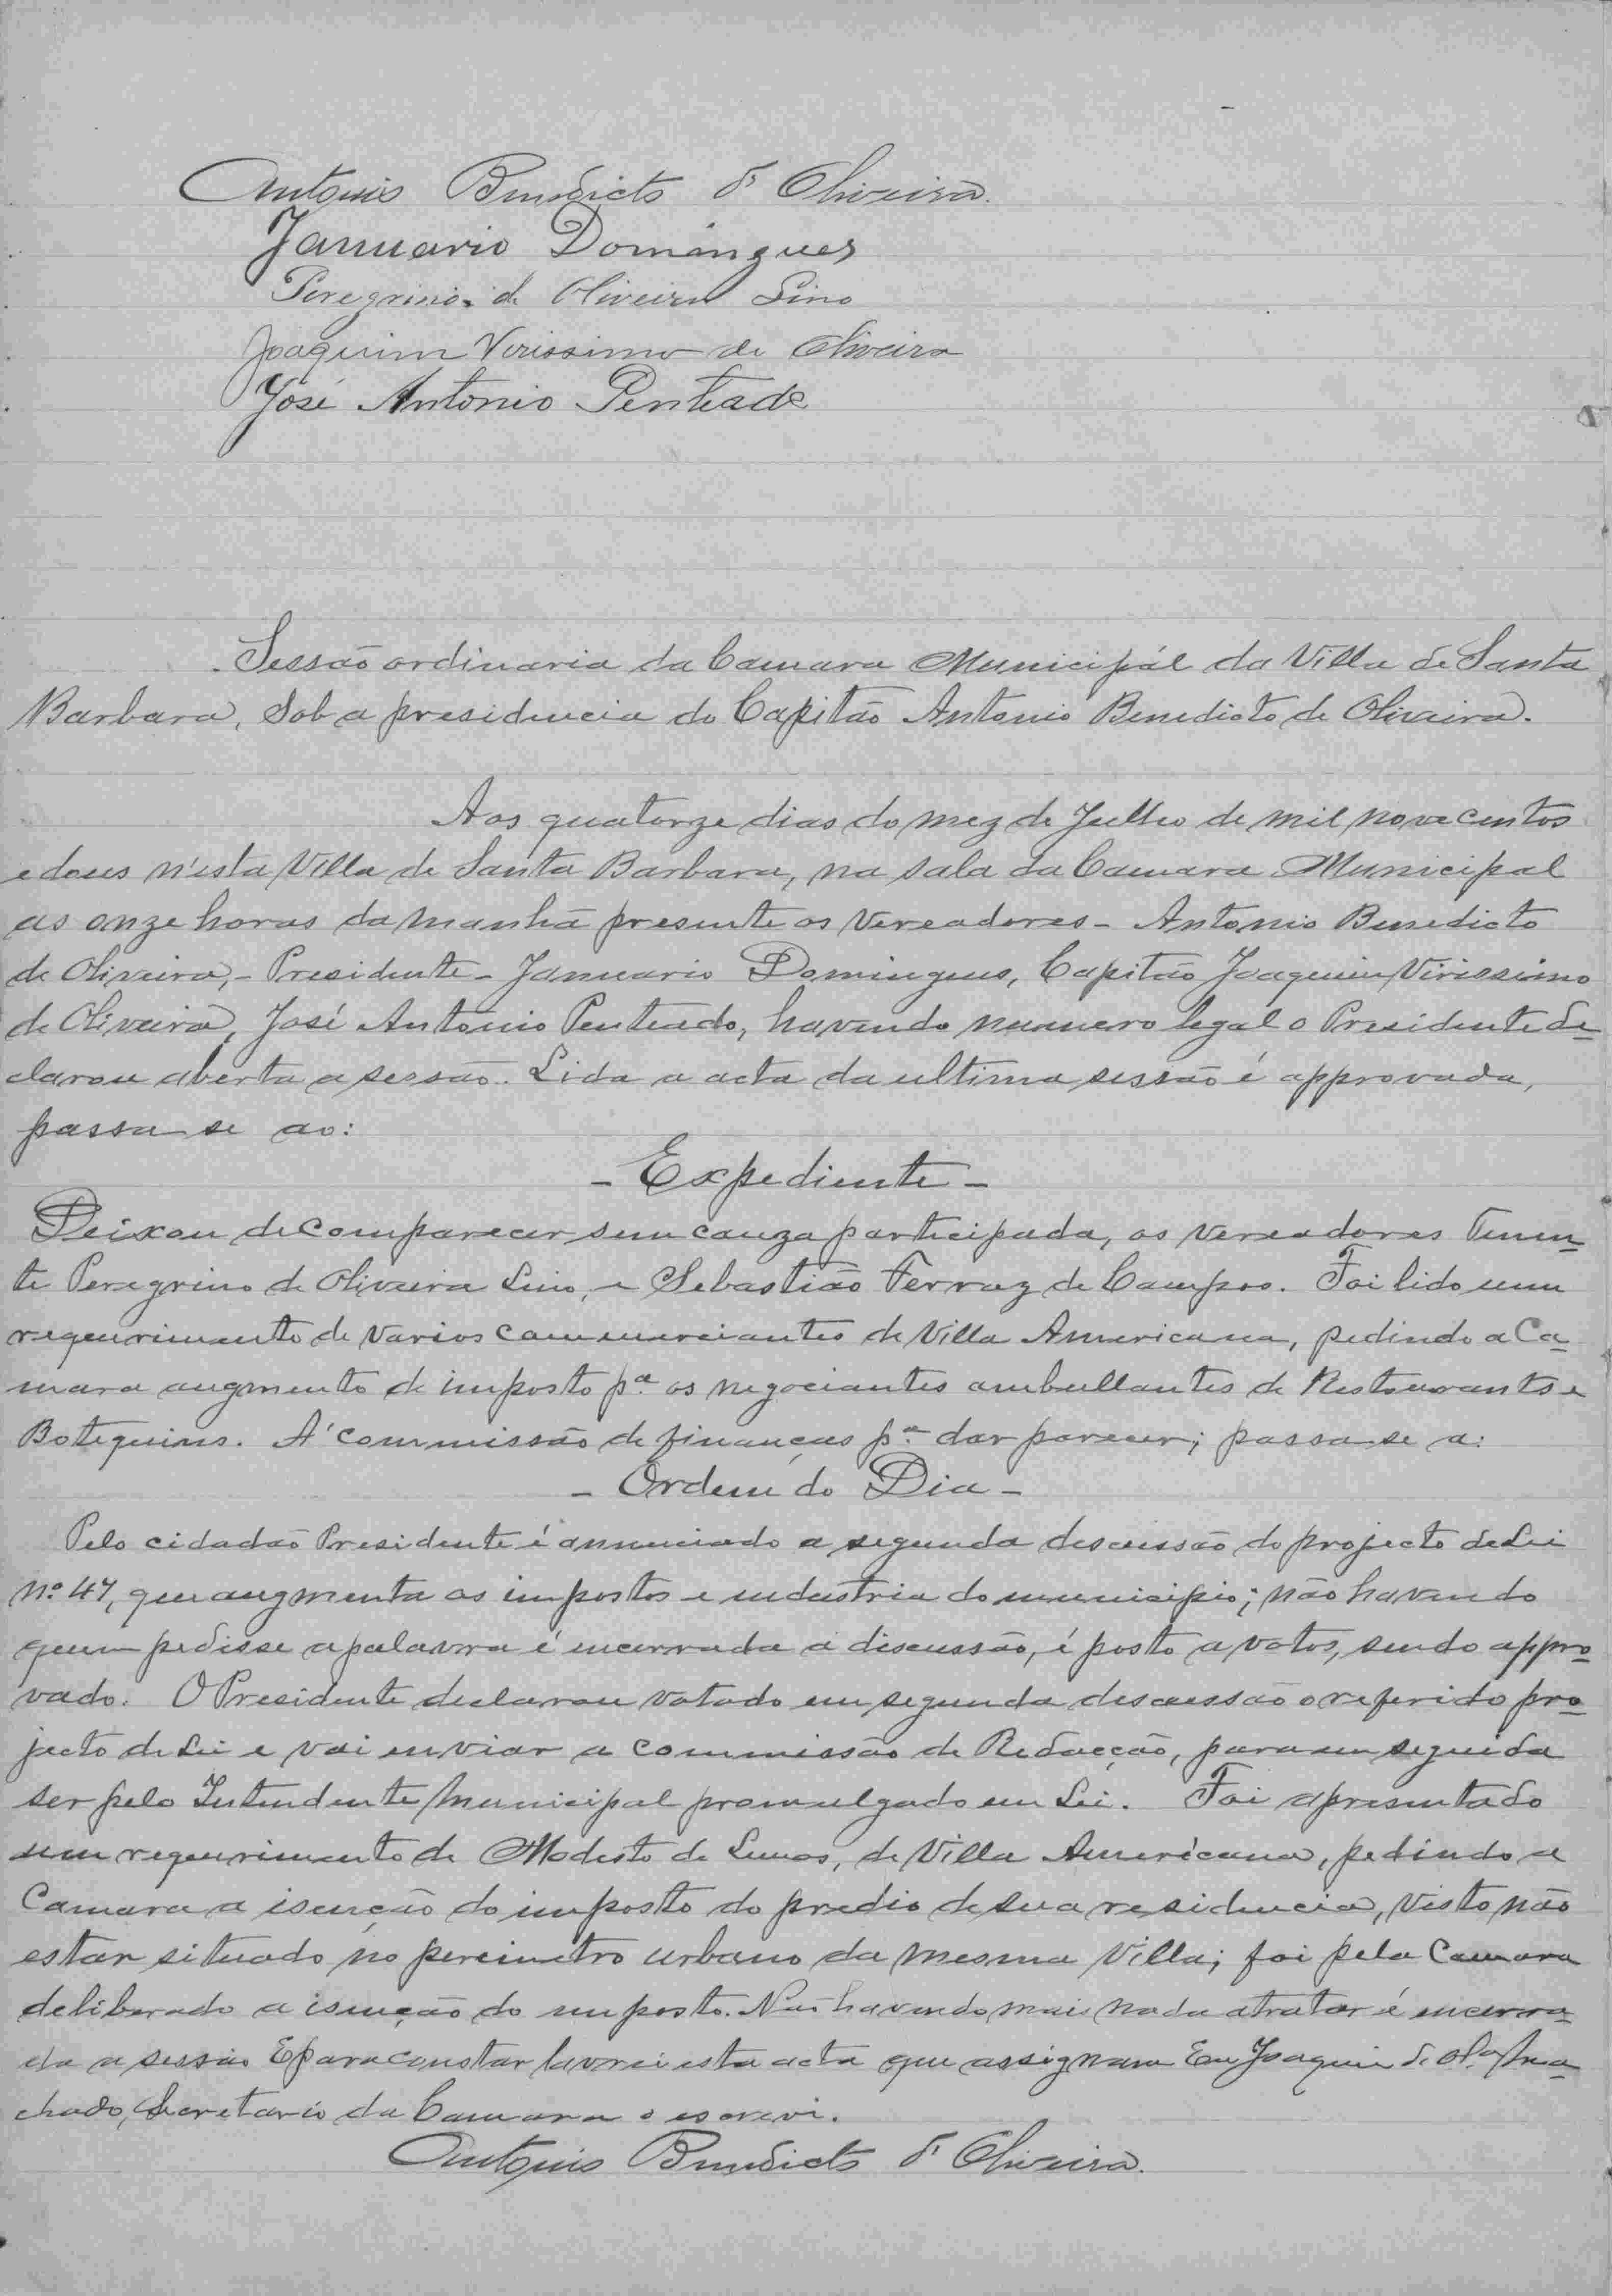 Antonio Benedicto d' Oliveira.
Januario Domingues
Peregrino de Oliveira Lino
Joaquim Verissimo de Oliveira
José Antonio Penteado
Sessão ordinaria da Camara Municipál da Villa de Santa
Barbara, Sob a presidencia do Capitão Antonio Benedicto de Oliveira.
Aos quatorze dias do mez de Julho de mil novecentos
e dous n'esta Villa de Santa Barbara, na sala da Camara Municipal
as onze horas da manhã presente os Vereadores - Antonio Benedicto
de Oliveira, - Presidente - Januario Domingues, Capitão Joaquim Virissimo
de Oliveira, José Antonio Penteado, havendo numero legal o Presidente de-
clarou aberta a sessão. Lida a acta da ultima sessão é approvada,
passa se ao:
- Expediente -
Deixou de comparecer sem cauza participada, os vereadores Tenen-
te Peregrino de Oliveira Lino, e Sebastião Ferraz de Campos. Foi lido um
requerimento de varios commerciantes de Villa Americana, pedindo a Ca-
mara augmento de imposto pª os negociantes ambullantes de Restaurants e
Botequins. A' commissão de finanças pª dar parecer; passa-se a:
- Ordem do Dia -
Pelo cidadão Presidente é annunciado a segunda descussão do projecto de Lei
Nº 47, que augmenta os impostos e industria do municipio; não havendo
quem pedisse a palavra é encerrada a discussão, é posto a votos, sendo appro-
vado. O Presidente declarou votado em segunda descussão o referido pro-
jecto de Lei e vai enviar a commissão de Redacção, para em seguida
ser pelo Intendente Municipal promulgado em Lei. Foi apresentado
um requerimento de Modesto de Lemos, de Villa Americana, pedindo a
Camara a isenção do imposto do predio de sua residencia, visto não
estar situado no pereimetro urbano da mesma Villa; foi pela Camara
deliberado a isenção do imposto. Não havendo mais nada a tratar é encerra-
da a sessão E para constar lavrei esta acta que assignam Eu Joaquim de Olª Ma-
chado, Secretario da Camara o escrevi.
Antonio Benedicto d' Oliveira.